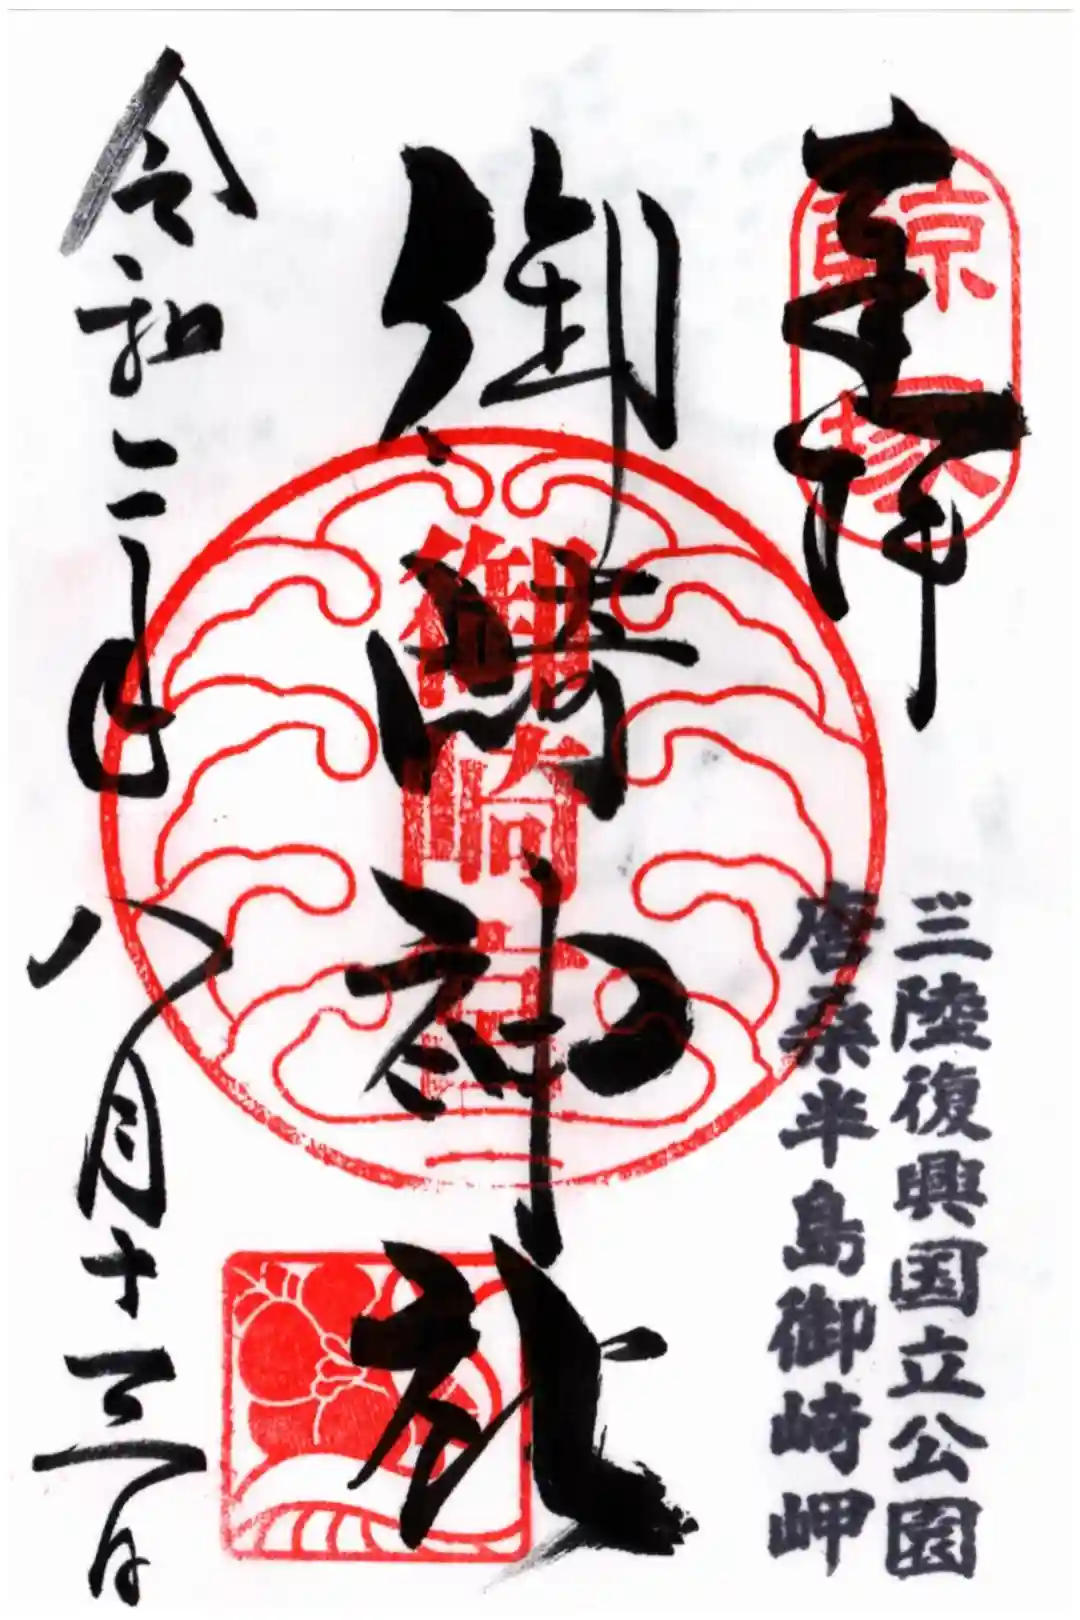 奉拝
鯨塚
三陸復興国立公園
唐桑半島御崎岬
御崎神社
御崎
令和二年八月十三日